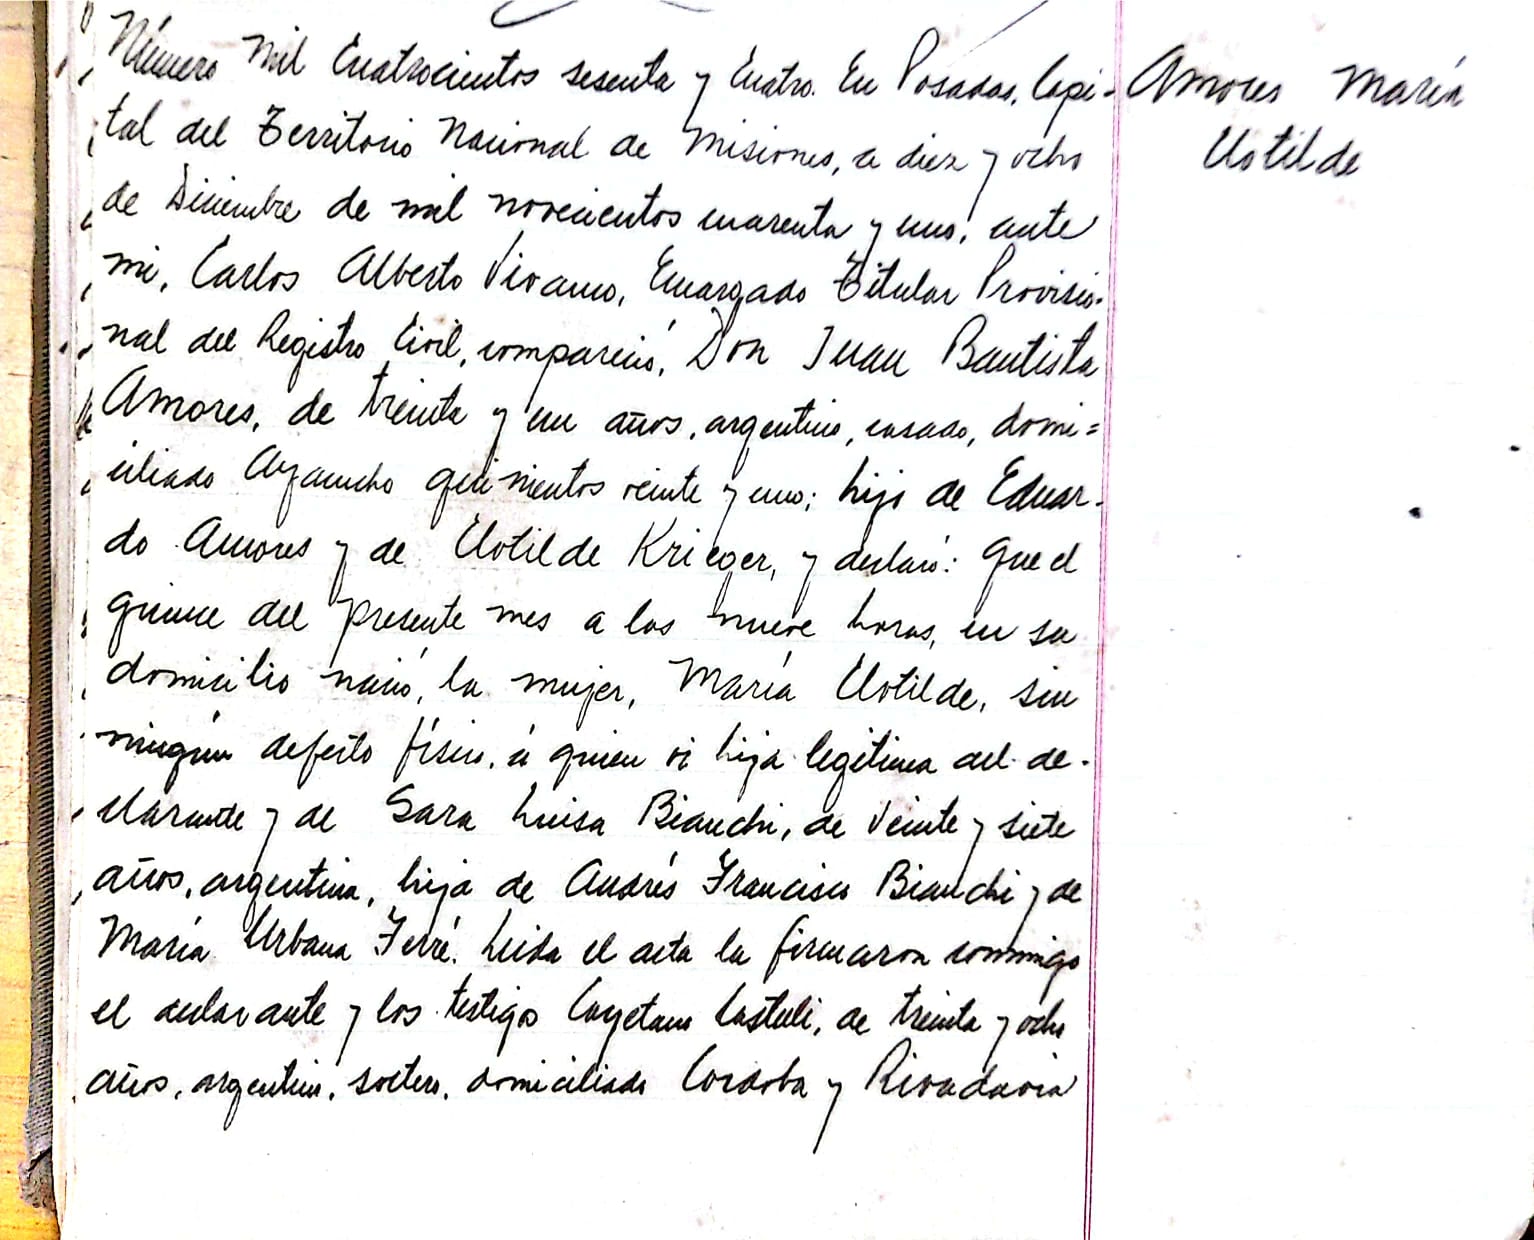 Número Mil Cuatrocientos sesenta y Cuatro. En Posadas, Capi-
tal del Territorio Nacional de Misiones, a diez y ocho
de Diciembre de mil novecientos cuarenta y uno, ante
mi, Carlos Alberto Vivanco, Encargado Titular Provisio-
nal del Registro Civil, compareció, Don Juan Bautista
Amores, de treinta y un años, argentino, casado, domi=
ciliado Ayacucho quinientos veinte y uno; hijo de Eduar-
do Amores y de Clotilde Krieger, y declaró: Que el
quince del presente mes a las nueve horas, en su
domicilio nació, la mujer, María Clotilde, sin
ningún defecto físico, a quien vi hija legítima del de-
clarante y de Sara Luisa Bianchi, de Veinte y siete
años, argentina, hija de Andrés Francisco Bianchi y de
María Urbana Ferré. Leida el acta la firmaron conmigo
el declarante y los testigos Cayetano Castelli, de treinta y ocho
años, argentino, soltero, domiciliado Cordoba y Rivadavia
Amores María
Clotilde